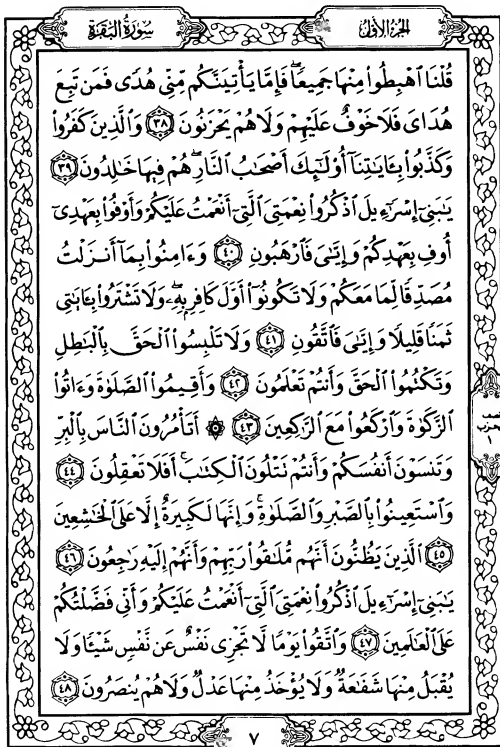 الجزء الأول
سورة البقرة
قُلْنَا ٱهْبِطُوا۟ مِنْهَا جَمِيعًۭا ۖ فَإِمَّا يَأْتِيَنَّكُم مِّنِّى هُدًۭى فَمَن تَبِعَ
هُدَاىَ فَلَا خَوْفٌ عَلَيْهِمْ وَلَا هُمْ يَحْزَنُونَ ٣٨ وَٱلَّذِينَ كَفَرُوا۟
وَكَذَّبُوا۟ بِـَٔايَـٰتِنَآ أُو۟لَـٰٓئِكَ أَصْحَـٰبُ ٱلنَّارِ ۖ هُمْ فِيهَا خَـٰلِدُونَ ٣٩
يَـٰبَنِىٓ إِسْرَٰٓءِيلَ ٱذْكُرُوا۟ نِعْمَتِىَ ٱلَّتِىٓ أَنْعَمْتُ عَلَيْكُمْ وَأَوْفُوا۟ بِعَهْدِىٓ
أُوفِ بِعَهْدِكُمْ وَإِيَّـٰىَ فَٱرْهَبُونِ ٤٠ وَءَامِنُوا۟ بِمَآ أَنزَلْتُ
مُصَدِّقًۭا لِّمَا مَعَكُمْ وَلَا تَكُونُوٓا۟ أَوَّلَ كَافِرٍۭ بِهِۦ ۖ وَلَا تَشْتَرُوا۟ بِـَٔايَـٰتِى
ثَمَنًۭا قَلِيلًۭا وَإِيَّـٰىَ فَٱتَّقُونِ ٤١ وَلَا تَلْبِسُوا۟ ٱلْحَقَّ بِٱلْبَـٰطِلِ
وَتَكْتُمُوا۟ ٱلْحَقَّ وَأَنتُمْ تَعْلَمُونَ ٤٢ وَأَقِيمُوا۟ ٱلصَّلَوٰةَ وَءَاتُوا۟
ٱلزَّكَوٰةَ وَٱرْكَعُوا۟ مَعَ ٱلرَّٰكِعِينَ ٤٣ ۞ أَتَأْمُرُونَ ٱلنَّاسَ بِٱلْبِرِّ
وَتَنسَوْنَ أَنفُسَكُمْ وَأَنتُمْ تَتْلُونَ ٱلْكِتَـٰبَ ۚ أَفَلَا تَعْقِلُونَ ٤٤
وَٱسْتَعِينُوا۟ بِٱلصَّبْرِ وَٱلصَّلَوٰةِ ۚ وَإِنَّهَا لَكَبِيرَةٌ إِلَّا عَلَى ٱلْخَـٰشِعِينَ
٤٥ ٱلَّذِينَ يَظُنُّونَ أَنَّهُم مُّلَـٰقُوا۟ رَبِّهِمْ وَأَنَّهُمْ إِلَيْهِ رَٰجِعُونَ ٤٦
يَـٰبَنِىٓ إِسْرَٰٓءِيلَ ٱذْكُرُوا۟ نِعْمَتِىَ ٱلَّتِىٓ أَنْعَمْتُ عَلَيْكُمْ وَأَنِّى فَضَّلْتُكُمْ
عَلَى ٱلْعَـٰلَمِينَ ٤٧ وَٱتَّقُوا۟ يَوْمًۭا لَّا تَجْزِى نَفْسٌ عَن نَّفْسٍۢ شَيْـًۭٔا وَلَا
يُقْبَلُ مِنْهَا شَفَـٰعَةٌۭ وَلَا يُؤْخَذُ مِنْهَا عَدْلٌۭ وَلَا هُمْ يُنصَرُونَ ٤٨
١
٧